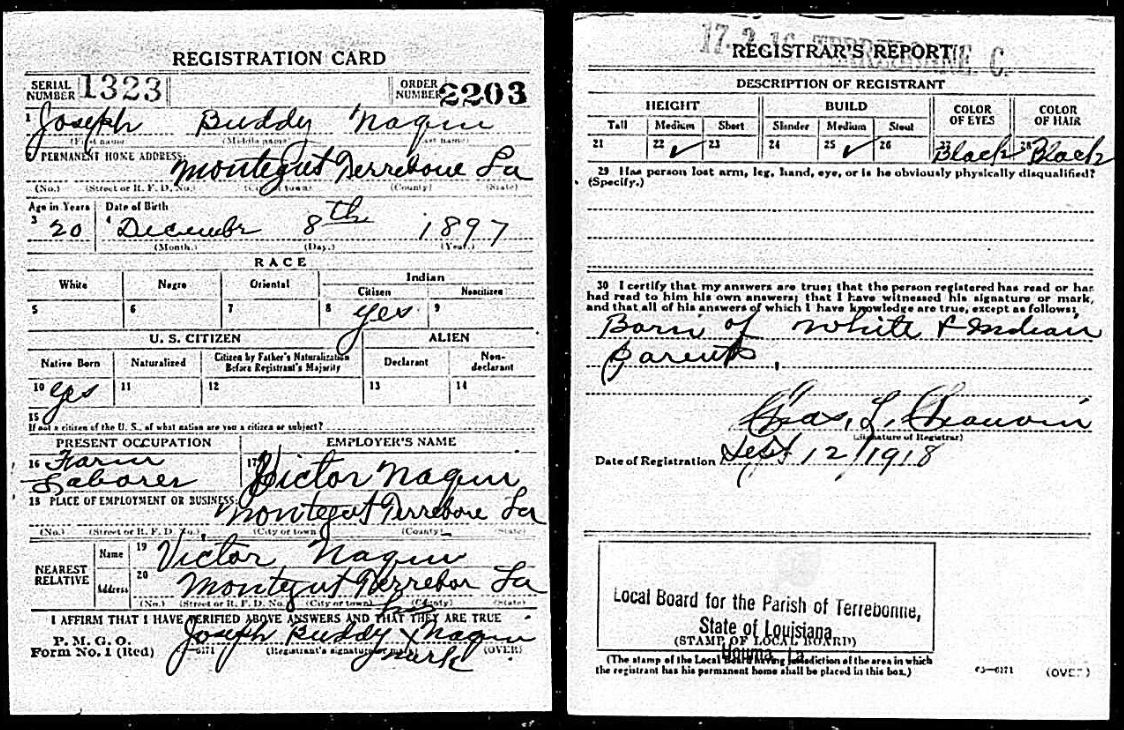 REGISTRATION CARD
SERIAL NUMBER 1323 ORDER NUMBER 2203
1 Joseph Buddy Naquin
(First name) (Middle name) (Last name)
2 PERMANENT HOME ADDRESS:
Montegut Terrebone La
(No.) (Street or R. F. D. No.) (City or town) (County) (State)
Age in Years Date of Birth
3 20 4 Decembr 8th 1897
(Month.) (Day.) (Year.)
RACE
White Negro Oriental Indian
Citizen Noncitizen
5 6 7 8 yes 9
U. S. CITIZEN ALIEN
Native Born Naturalized Citizen by Father's Naturalization Before Registrant's Majority Declarant Non-declarant
10 yes 11 12 13 14
15
If not a citizen of the U. S., of what nation are you a citizen or subject?
PRESENT OCCUPATION EMPLOYER'S NAME
16 Farm Laborer 17 Victor Naquin
18 PLACE OF EMPLOYMENT OR BUSINESS:
Montegut Terrebone La
(No.) (Street or R. F. D. No.) (City or town) (County) (State)
NEAREST RELATIVE Name 19 Victor Naquin
Address 20 Montegut Terrebon La
(No.) (Street or R. F. D. No.) (City or town) (County) (State)
I AFFIRM THAT I HAVE VERIFIED ABOVE ANSWERS AND THAT THEY ARE TRUE
his
P. M. G. O. Joseph Buddy x Naquin
Form No. 1 (Red) 6171 (Registrant's signature or mark) (OVER)
mark
17-2-16 TERREBONNE. C.
REGISTRAR'S REPORT
DESCRIPTION OF REGISTRANT
HEIGHT BUILD COLOR OF EYES COLOR OF HAIR
Tall Medium Short Slender Medium Stout
21 22 ✓ 23 24 25 ✓ 26 27 Black 28 Black
29 Has person lost arm, leg, hand, eye, or is he obviously physically disqualified?
(Specify.)
30 I certify that my answers are true; that the person registered has read or has
had read to him his own answers; that I have witnessed his signature or mark,
and that all of his answers of which I have knowledge are true, except as follows:
Born of White & Indian
parents.
Chas. L. Chauvin
(Signature of Registrar)
Date of Registration Sept 12/1918
Local Board for the Parish of Terrebonne,
State of Louisiana
(STAMP OF LOCAL BOARD)
Houma, La.
(The stamp of the Local Board having jurisdiction of the area in which
the registrant has his permanent home shall be placed in this box.)
63—6171 (OVER)